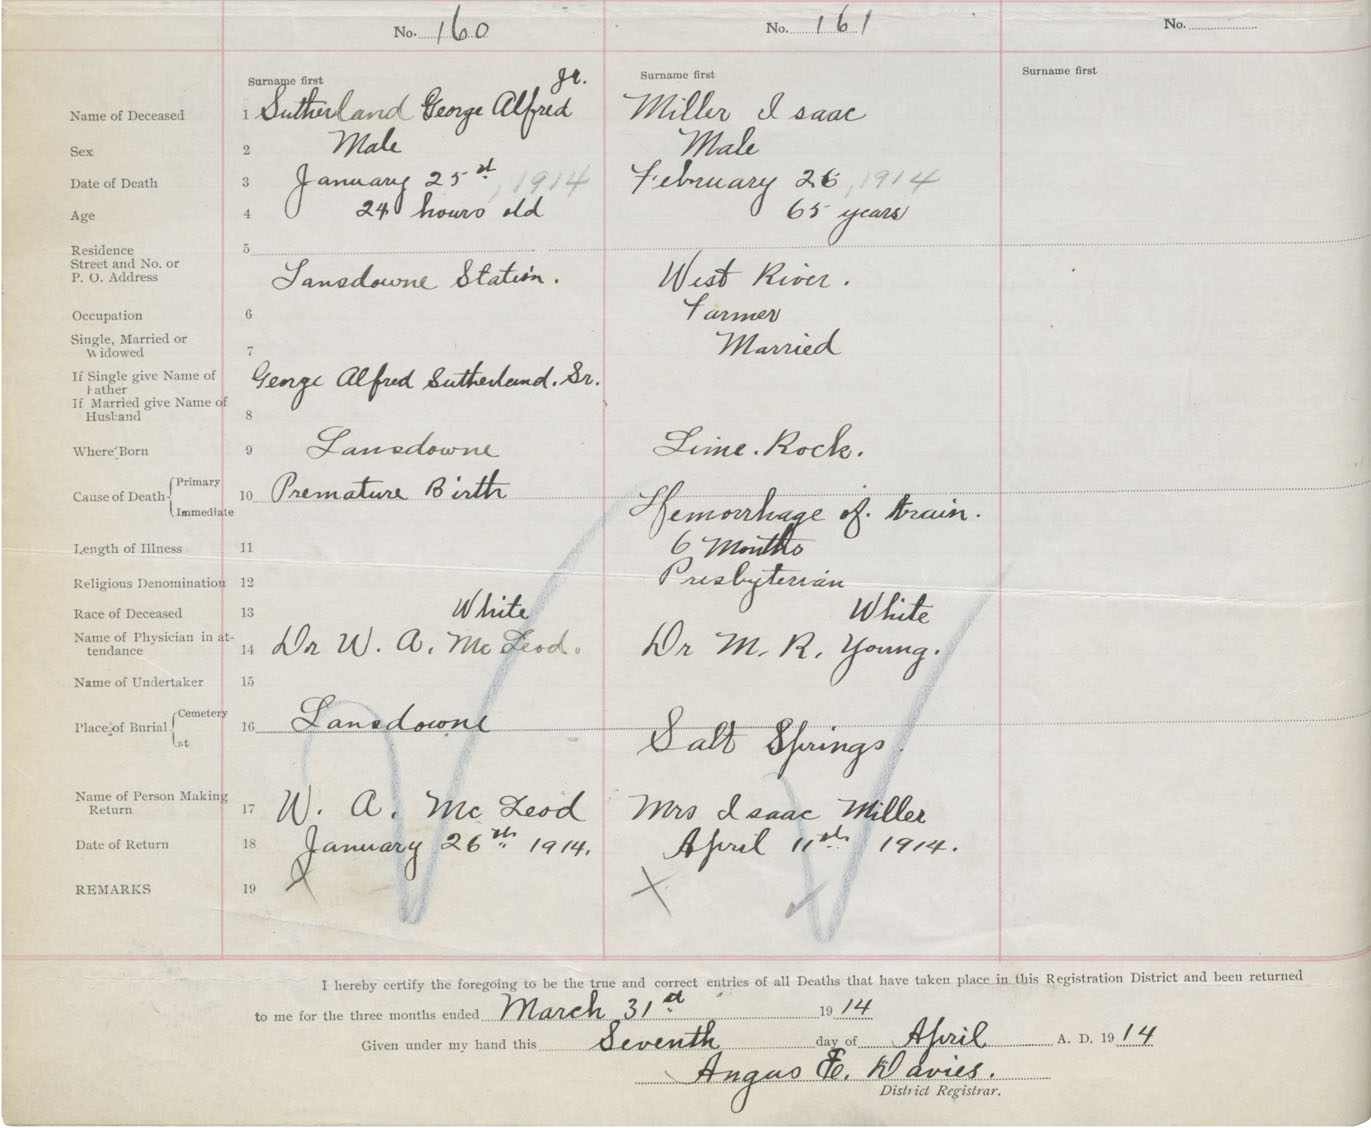 No. 160 No. 161 No.
Surname first Jr. Surname first Surname first
Name of Deceased 1 Sutherland George Alfred Miller Isaac
Sex 2 Male Male
Date of Death 3 January 25st, 1914 February 26, 1914
Age 4 24 hours old 65 years
Residence 5
Street and No. or
P. O. Address Lansdowne Station. West River.
Occupation 6 Farmer
Single, Married or
Widowed 7 Married
If Single give Name of
Father George Alfred Sutherland. Sr.
If Married give Name of
Husband 8
Where Born 9 Lansdowne Lime. Rock.
Cause of Death Primary 10 Premature Birth
Immediate Hemorrhage of. brain.
Length of Illness 11 6 Months
Religious Denomination 12 Presbyterian
Race of Deceased 13 White White
Name of Physician in at-
tendance 14 Dr W. A. McLeod. Dr M. R. Young.
Name of Undertaker 15
Place of Burial Cemetery 16 Lansdowne Salt Springs.
at
Name of Person Making
Return 17 W. A. McLeod Mrs Isaac Miller
Date of Return 18 January 26th 1914. April 11st 1914.
REMARKS 19 X X
I hereby certify the foregoing to be the true and correct entries of all Deaths that have taken place in this Registration District and been returned
to me for the three months ended March 31st 1914
Given under my hand this Seventh day of April A. D. 1914
Angus E. Davies.
District Registrar.